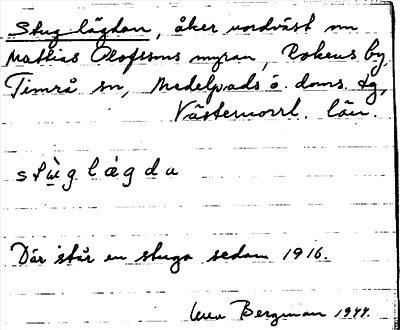 Stuglägdan, åker nordväst om
Mattias Olofssons myran, Bokens by,
Timrå sn, Medelpads ö. doms. tg,
Västernorrl. län.
stùg lägda
Där står en stuga sedan 1916.
Bergman 1944.